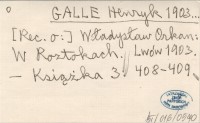 GALLE Henryk 1903...
[Rec. o:] Władysław Orkan:
W Roztokach. Lwów 1903.
– Książka 3. 408-409.